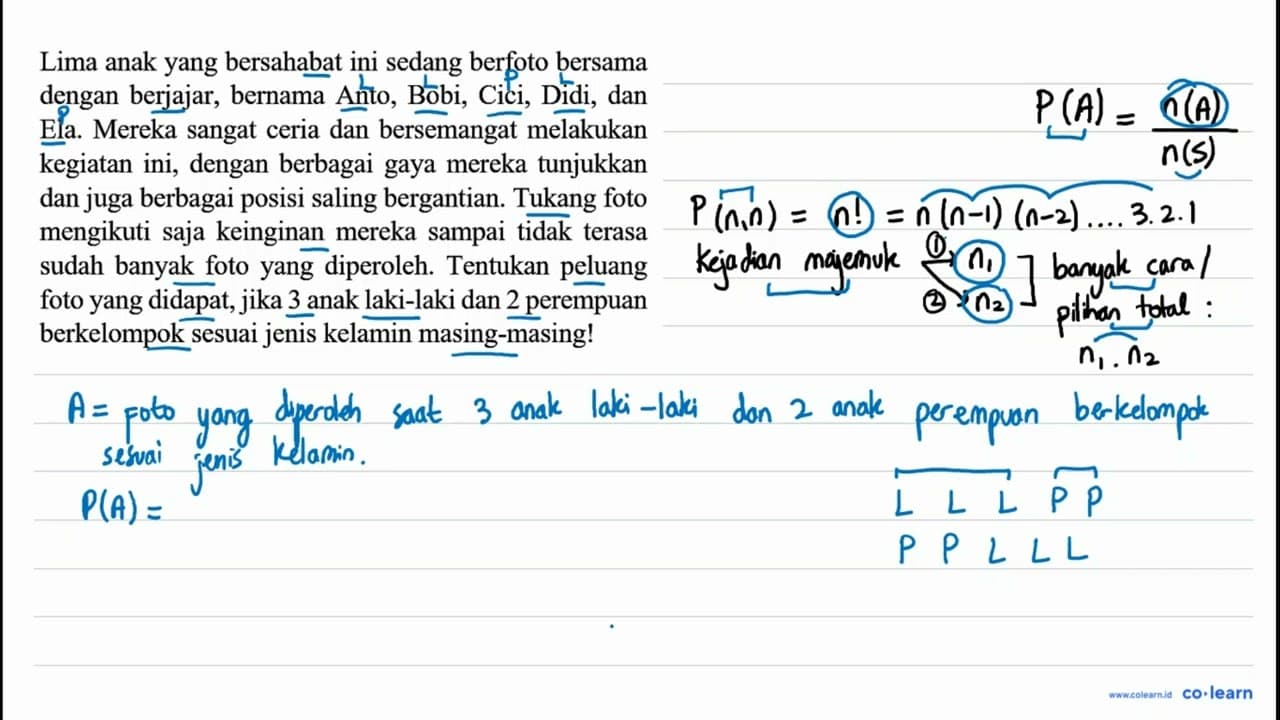 Lima anak yang bersahabat ini sedang berfoto bersama
L L P L
dengan berjajar, bernama Anto, Bobi, Cici, Didi, dan
P
Ela. Mereka sangat ceria dan bersemangat melakukan
kegiatan ini, dengan berbagai gaya mereka tunjukkan
dan juga berbagai posisi saling bergantian. Tukang foto
mengikuti saja keinginan mereka sampai tidak terasa
sudah banyak foto yang diperoleh. Tentukan peluang
foto yang didapat, jika 3 anak laki-laki dan 2 perempuan
berkelompok sesuai jenis kelamin masing-masing!
P(A) = n(A)
n(S)
P(n,n) = n! = n(n-1)(n-2).... 3.2.1
Kejadian majemuk ① n₁
② n₂
banyak cara/
pilihan total :
n₁ . n₂
A = foto yang diperoleh saat 3 anak laki-laki dan 2 anak perempuan berkelompok
sesuai jenis kelamin.
P(A) =
L L L P P
P P L L L
www.colearn.id co·learn